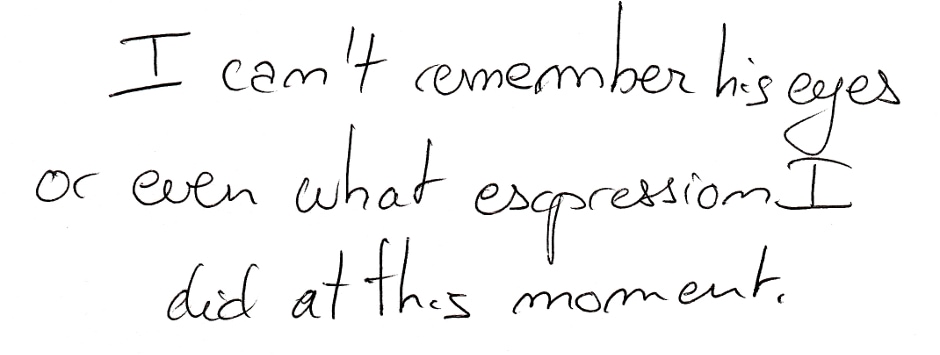 I can't remember his eyes
or even what expression I
did at this moment.